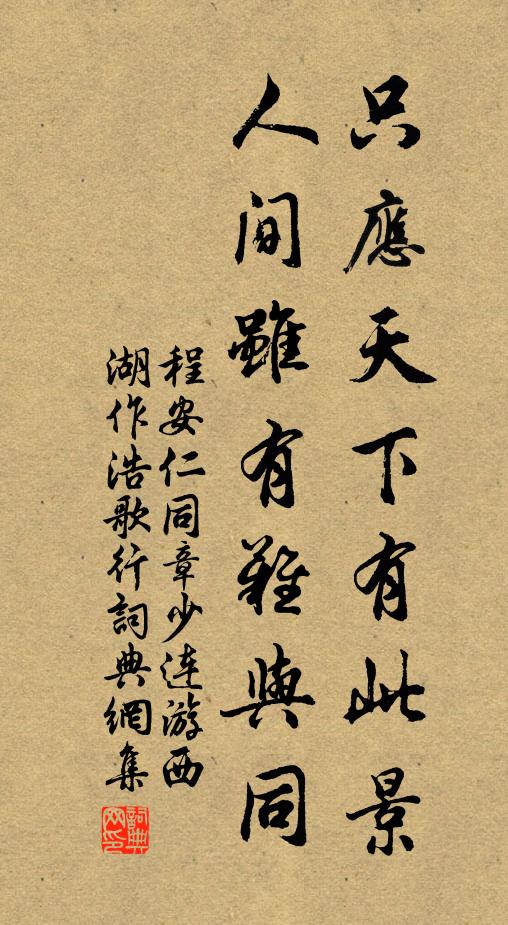 只應天下有此景
人间雖有難與同
程安仁同章少連游西
湖作浩歌行詞典網集
詞典网印